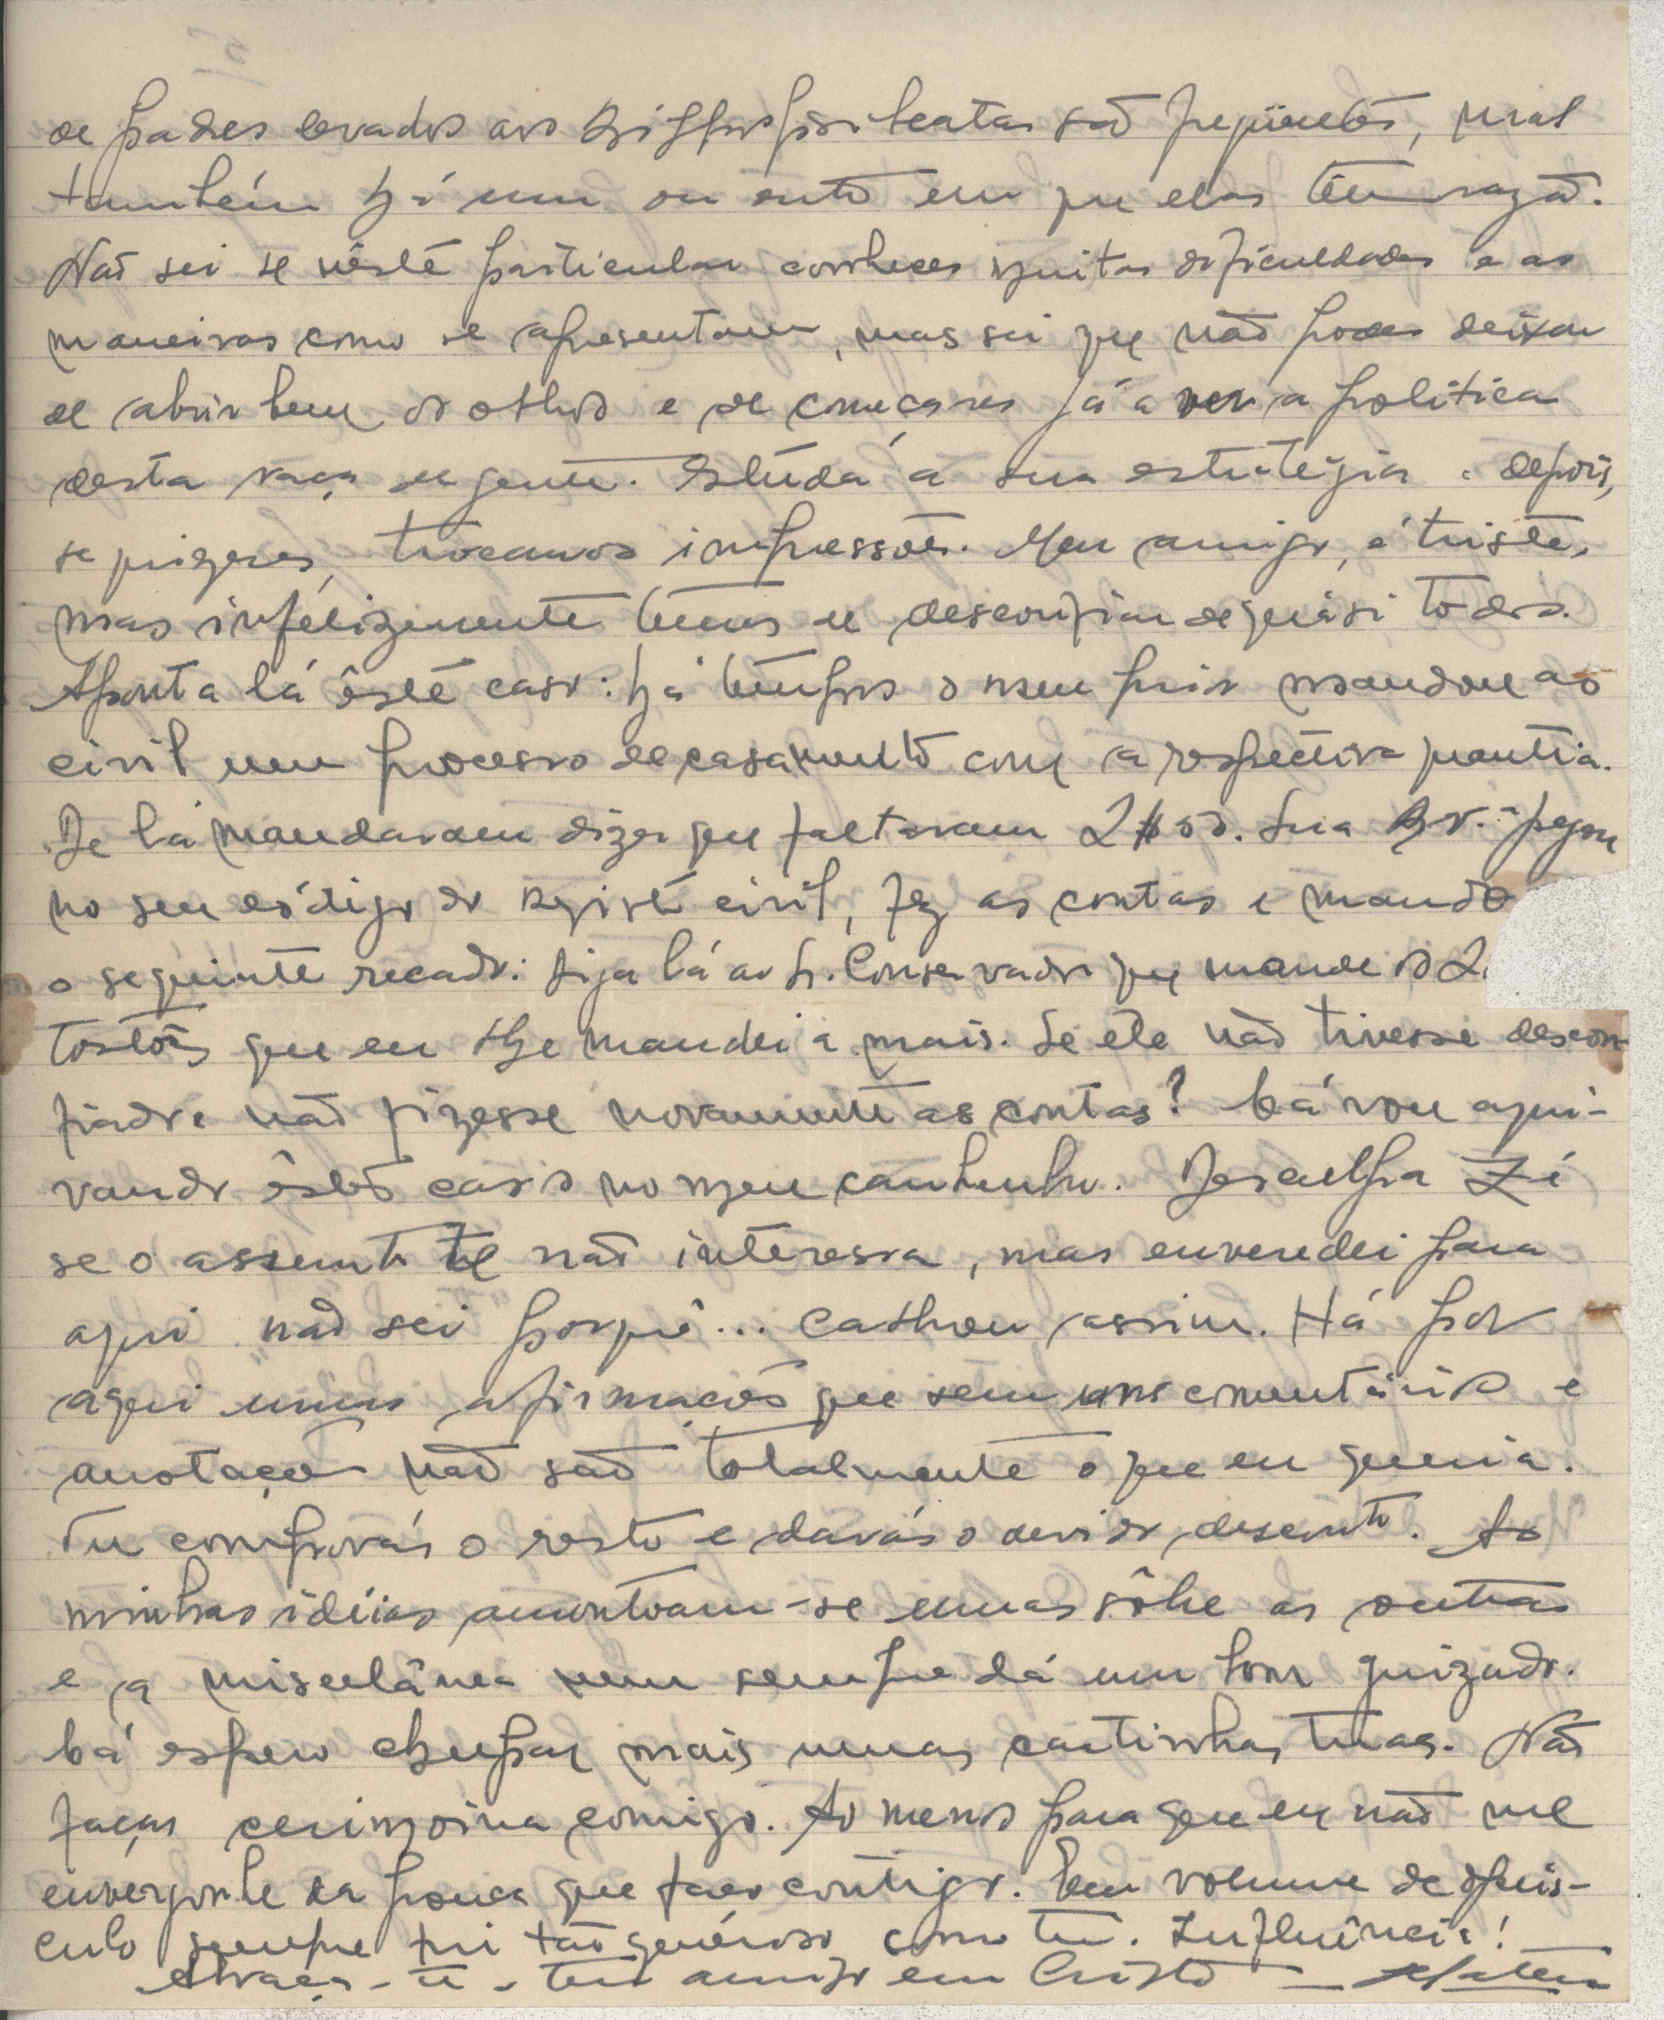 de padres levados aos Bispos por beatas são frequentes, mas
também há um ou outro em que elas têm razão.
Não sei se nêste particular conheces muitas dificuldades e as
maneiras como se apresentam, mas sei que não podes deixar
de abrir bem os olhos e de começares já a ver a política
desta raça de gente. Estuda a sua estratégia e depois,
se quizeres, trocamos impressões. Meu amigo, é triste,
mas infelizmente temos de desconfiar de quási todos.
Aponta lá êste caso: há tempos o meu prior mandou ao
civil um processo de casamento com a respectiva quantia.
De lá mandaram dizer que faltavam 2$50. Sua Rv.ª pegou
no seu código do registo civil, fez as contas e mandou
o seguinte recado: diga lá ao Sr. Conservador que mande os 2
tostões que eu lhe mandei a mais. Se ele não tivesse descon-
fiado e não fizesse novamente as contas? Cá vou arqui-
vando êstes casos no meu canhenho. Desculpa Zé
se o assunto te não interessa, mas enveredei para
aqui não sei porquê... Calhou assim. Há por
aqui umas afirmações que sem uns comentários e
anotações não são totalmente o que eu queria.
Tu comprovás o resto e davás o devido desconto. As
minhas idéias amontoam-se umas sôbre as outras
e a miscelânea nem sempre dá um bom guizado.
Cá espero chupar mais umas cartinhas tuas. Não
faças cerimónia comigo. Ao menos para que eu não me
envergonhe da pouca que faço contigo. Em volume de opús-
culo sempre fui tão generoso como tu. Influência!
Abraça-te o teu amigo em Cristo —